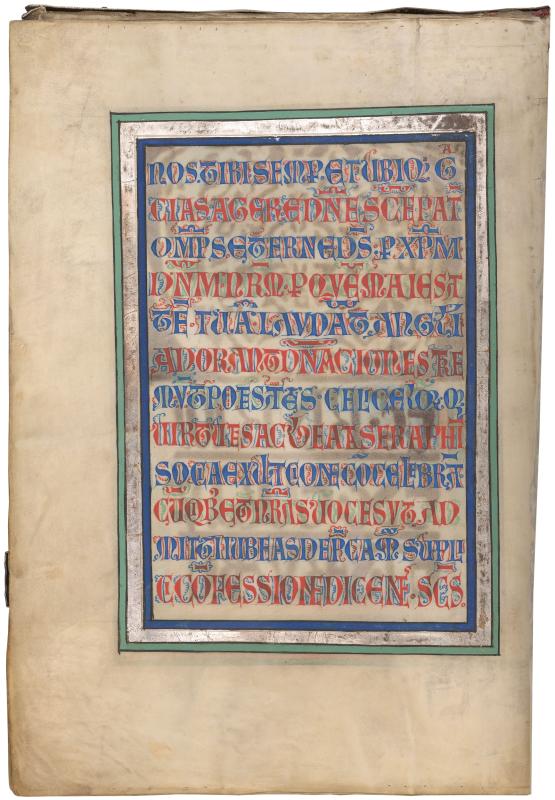 NOS TIBI SEMP. ET UBIQ; G
TIAS AGERE DNE SCE PAT
OMPS ETERNE DS. P. XPM
DNM NRM. P QVEM MAIESTA
TE. TUA LAVDAT ANGELI
ADORANT DNACIONES TRE
MVT POTESTATES CELI CELOQ; 
UIRTUTES AC BEATA SERAPHI
SOCIA EXULTCONE COCELEBRAT
CU QBZ ET NRAS UOCES VT AD
MITTI IUBEAS DEPCAM SUPPLI
CI COFESSIONE DICENT. SCS.